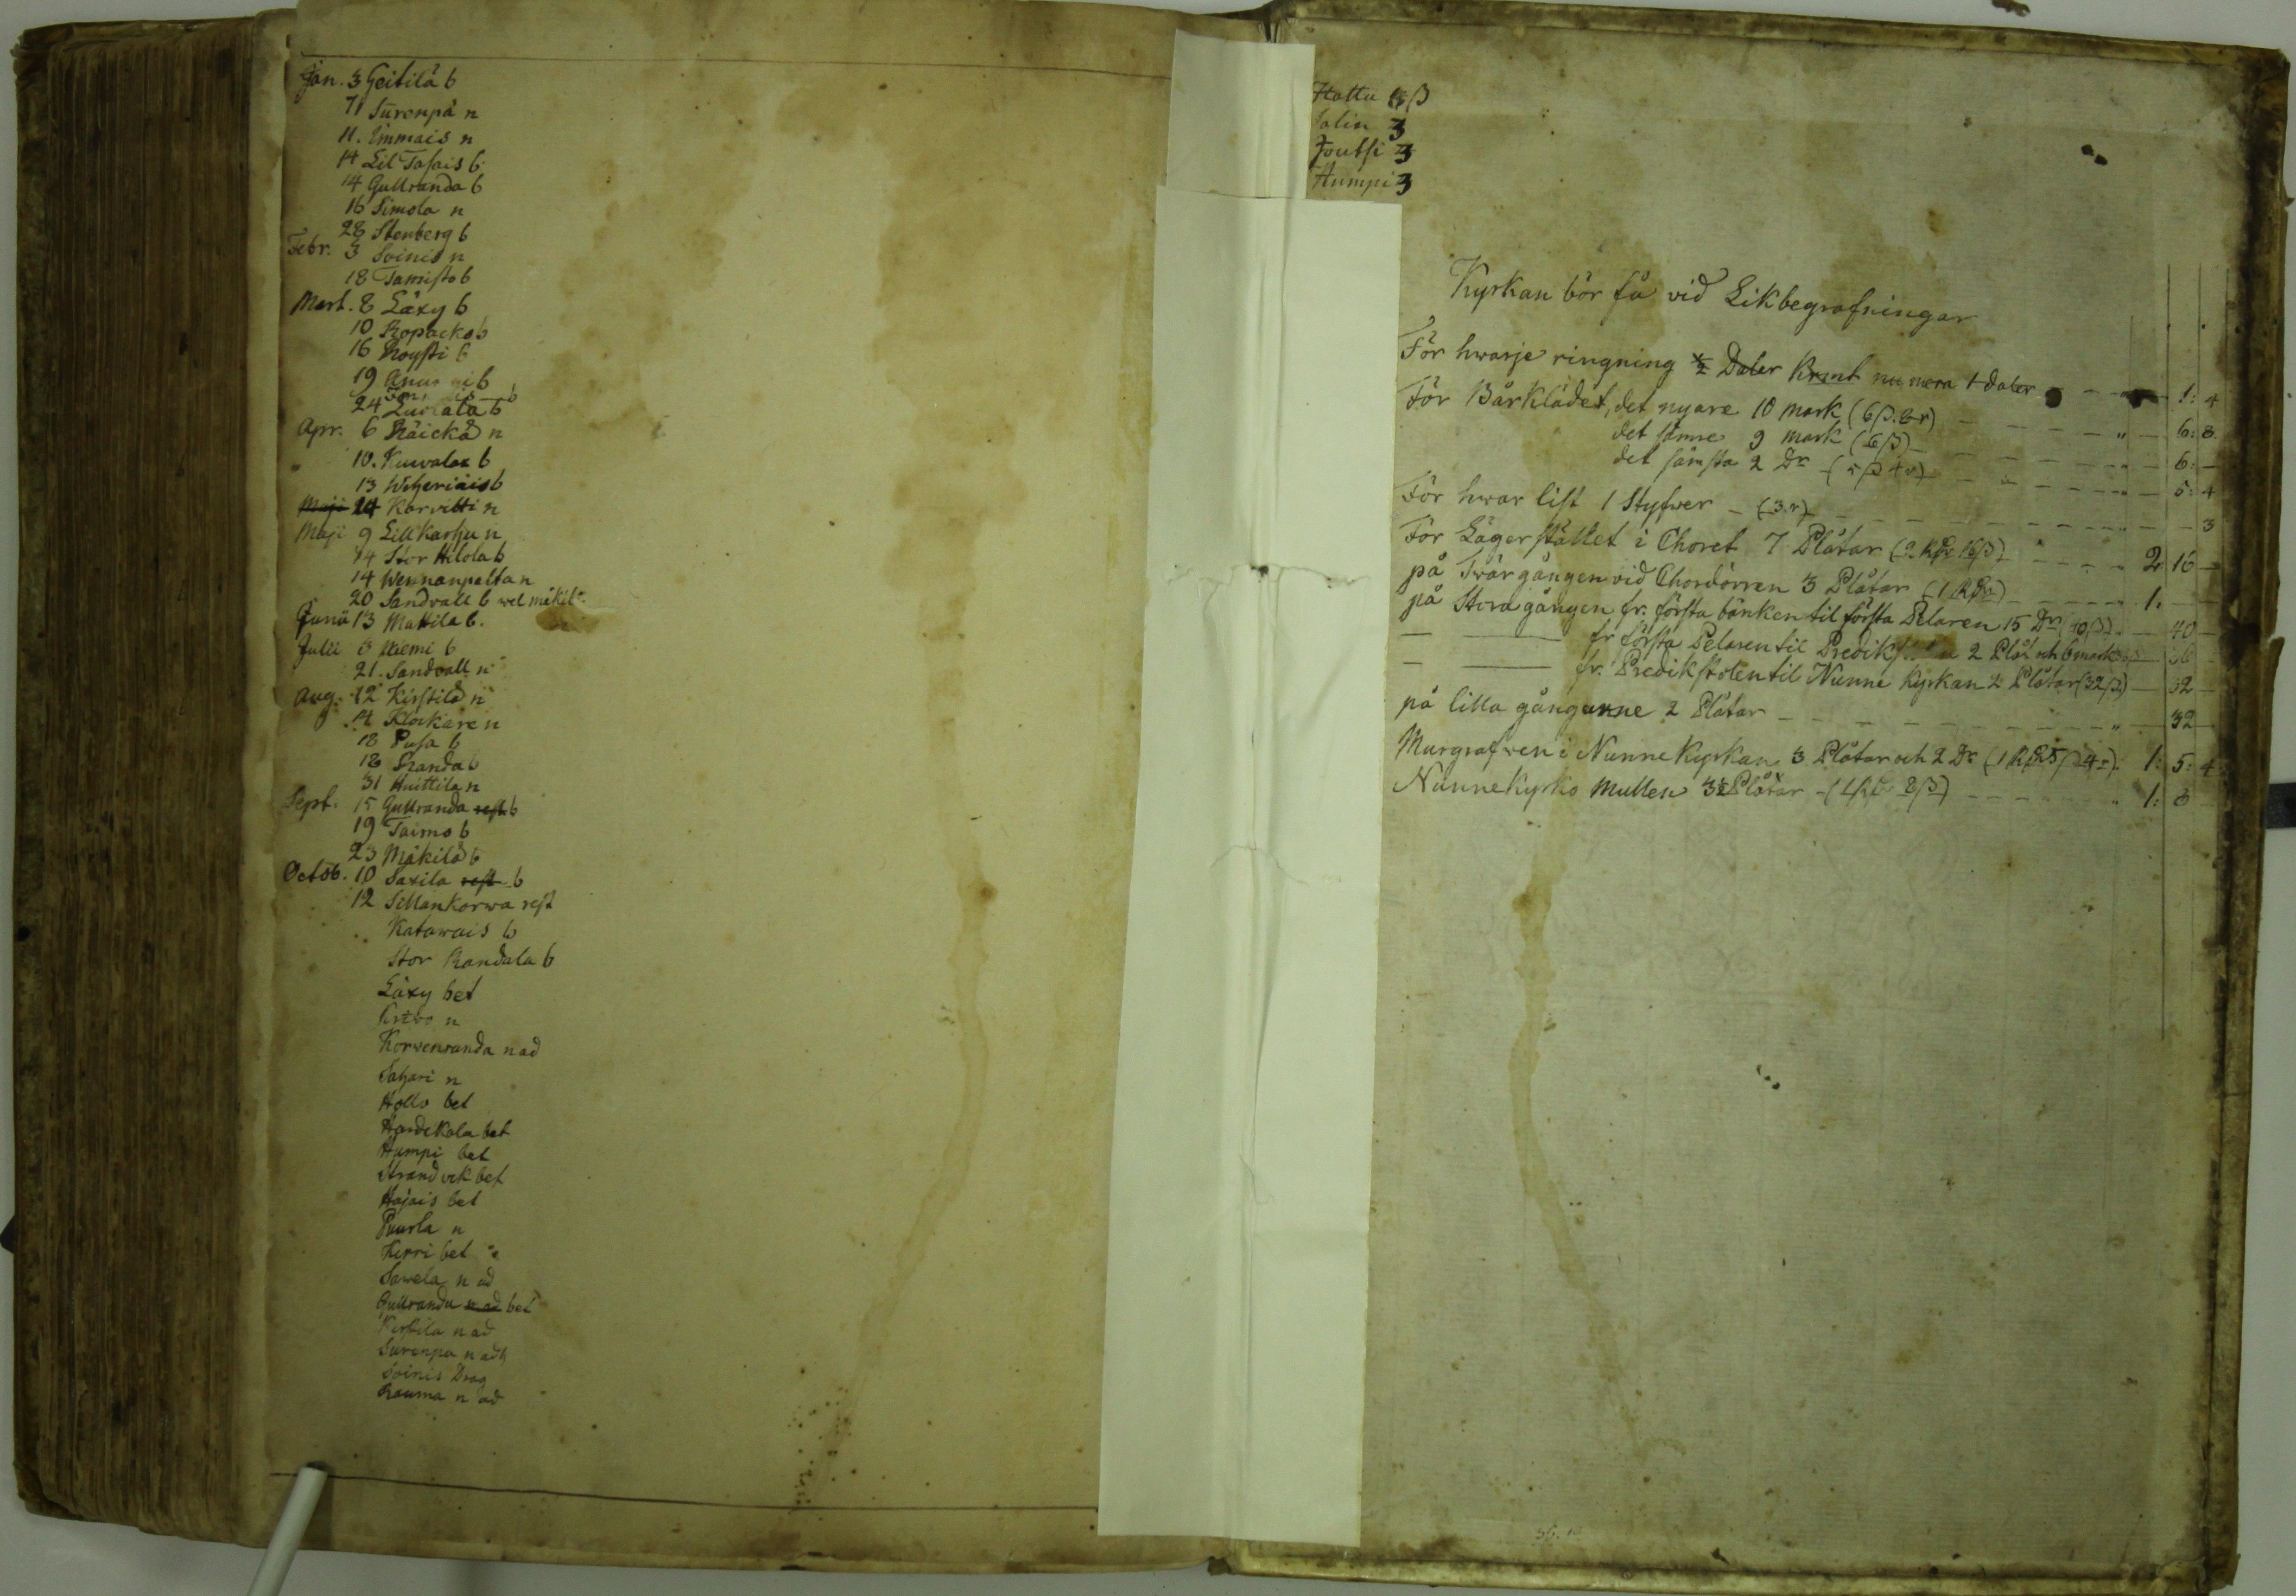 Jan. 3 Geitilä b
71 Surenpä n
11. Immais n
14 Lill Tasais b
14 Gullranda b
16 Simola n
28 Stenberg b
Febr. 3 Soinis n
18 Tamisto b
Mart. 8 Läxy b
10 Ropacko b
16 Röysti b
19 b
24 Luolala b
Apr. 6 Räickä n
10. Kuvalax b
13 Wiheriäis b
Maji 14 Karvitti n
Maji 9 Lill Karju n
14 Stor Hilola b
14 Wennanpelta n
20 Sandvall b wel mäkil
Junii 13 Mattila b.
Julii 3 Niemi b
21. Sandvall n
Aug. 12 Kirstilä n
14 Klockare n
18 Pusa b
18 Randa b
31 Huittila n
Sept. 15 Gullranda rest b
19 Taimo b
23 Mäkilä b
Octob. 10 Saxila rest b
12 Sillankorwa rest
Katawais b
Stor Randala b
Läxy bet
n
Korwenranda n ad
Sahari n
Hollo bet
Handekala bet
Humpi bet
Strandvik bet
Hajais bet
Puurla n
Kerri bet
Sawela n ad
Gullranda n ad bet
Kirstila n ad
Surenpa n adh
Soinis Drag
Rauma n ad
Hattu ß
Salin 3
Joutsi 3
Humpi 3
Kyrkan bör få vid Likbegrafningar
För hwarje ringning ½ Daler Krmt nu mera 1 daler 1: 4
För Bårklädet, det nyare 10 mark (6ß. 8r) 6: 8.
det sämre 9 mark (6ß) 6: —
det sämsta 2 Dr (5ß 4r) 5: 4
För hwar list 1 Styfwer - (3.r) 3
För Lägerstället i Choret 7 Plåtar (2 Rdr 16ß) 2 16 —
på Twärgången vid Chordörren 3 Plåtar (1 Rdr) 1. —
på Stora gången fr. första bänken til första Pelaren 15 Dr (40ß) 40 —
— fr första Pelaren til 2 Plåt och 6 mark 36
— fr. Predikstolen til Nunne Kyrkan 2 Plåtar (32ß) 32 —
på lilla gångarne 2 Plåtar 32
Murgrafwen i Nunne Kyrkan 3 Plåtar och 2 Dr (1 Rdr 5ß 4r). 1: 5: 4
Nunnekyrko Mullen 3½ Plåtar - (1 Rdr 8ß) 1: 8